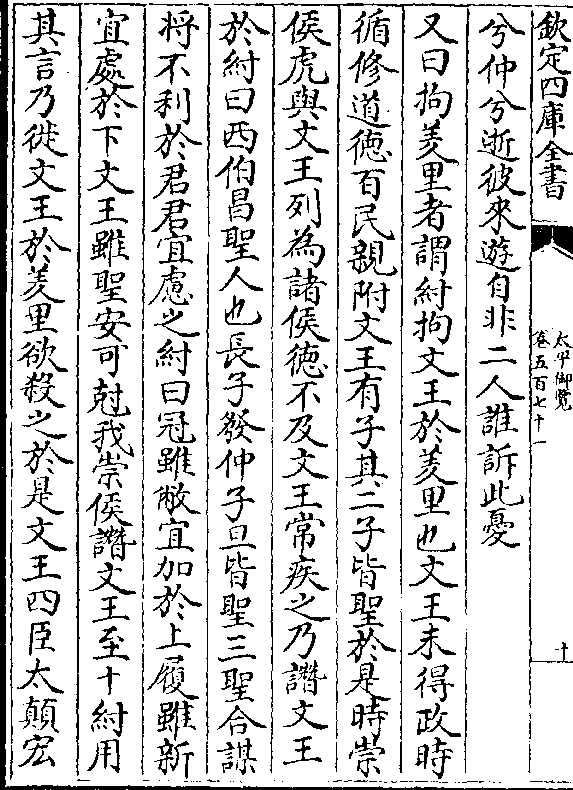 欽定四庫全書
太平御覽
卷五百七十一
十
兮仲兮逝彼來遊自非二人誰訴此憂
又曰拘羑里者謂紂拘文王於羑里也文王未得政時
循修道徳百民親附文王有子其二子皆聖於是時崇
侯虎與文王列為諸侯徳不及文王常疾之乃譖文王
於紂曰西伯昌聖人也長子發仲子旦皆聖三聖合謀
将不利於君君宜慮之紂曰冠雖敝宜加於上履雖新
宜處於下文王雖聖安可尅我崇侯譖文王至十紂用
其言乃徙文王於羑里欲殺之於是文王四臣太顛宏